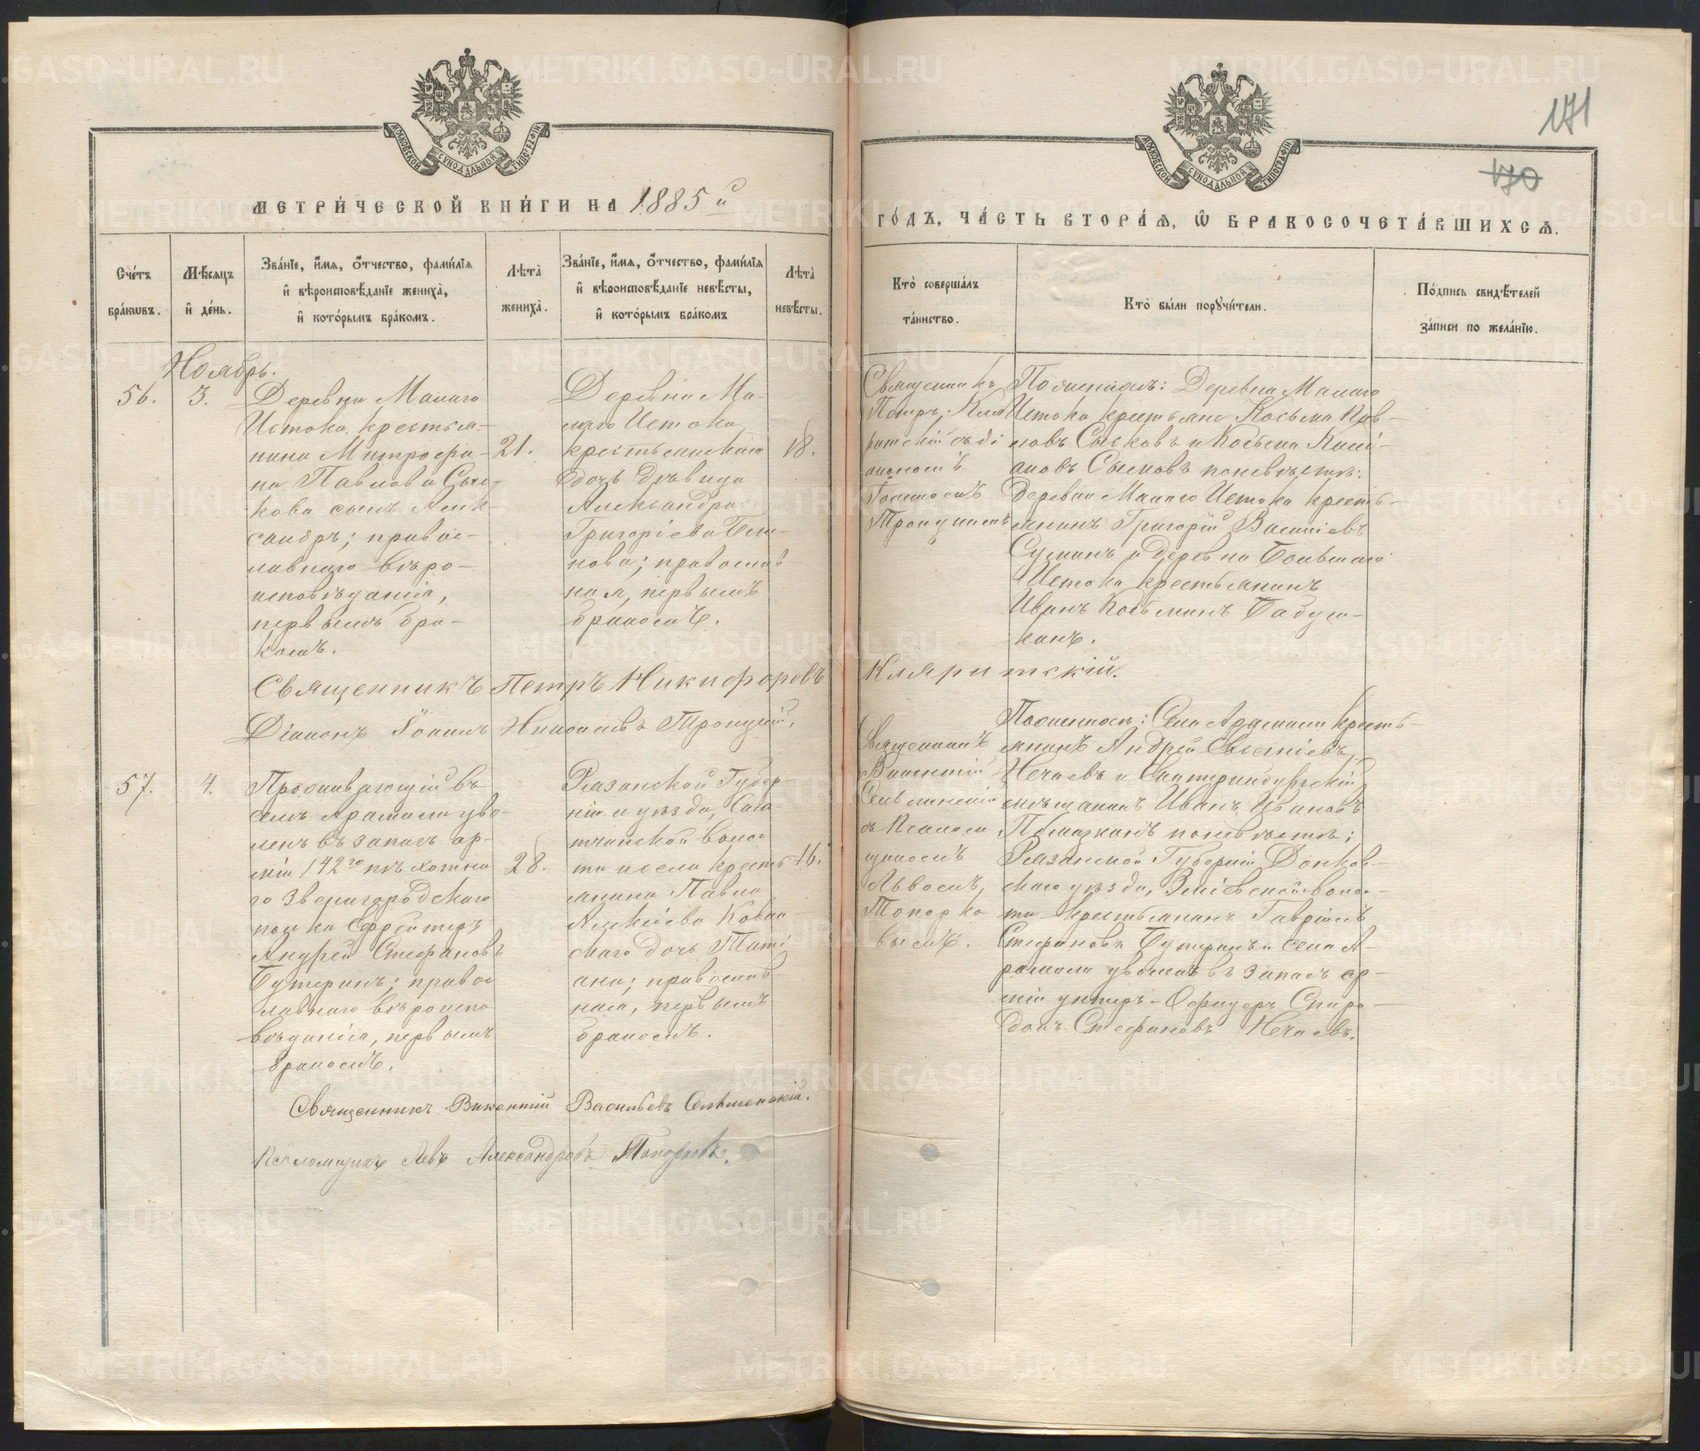 171
170
МЕТРИ́ЧЕСКОЙ КНИ́ГИ НА 1885 й
ГО́ДЪ, ЧА́СТЬ ВТОРА́Ѧ, Ѿ БРАКОСОЧЕТА́ВШИХСѦ.
Сче́тъ бра́кѡвъ.
Мѣ́сѧцъ и҆ де́нь.
Зва́нїе, и҆́мѧ, ѻ҆́тчество, фами́лїѧ и҆ вѣроисповѣ́данїе жениха̀, и҆ кото́рымъ бра́комъ.
Лѣта̀ жениха̀.
Зва́нїе, и҆́мѧ, ѻ҆́тчество, фами́лїѧ и҆ вѣроисповѣ́данїе невѣ́сты, и҆ кото́рымъ бра́комъ
Лѣта̀ невѣ́сты.
Кто̀ соверша́лъ та́инство.
Кто̀ бы́ли порꙋчи́тели.
По́дпись свидѣ́телей за́писи по жела́нїю.
Ноябрь.
56.
3.
Деревни Малаго
Истока крестья-
нина Митрофа-
на Павлова Сыс-
кова сынъ Алек-
сандръ; правос-
лавнаго вѣро-
исповѣданія,
первымъ бра-
комъ.
21.
Деревни Ма-
лаго Истока
крестьянская
дочь дѣвица
Александра
Григорьева
нова; православ-
ная, первымъ
бракомъ.
18.
Священникъ
Петръ Кляритскій съ ді
акономъ
Іоанномъ
Троицкимъ
По женихѣ: Деревни Малаго
Истока крестьяне Косьма Пав-
ловъ и Косьма
по невѣстѣ:
Деревни Малаго Истока кресть-
янинъ Григорій Васильевъ
и деревни Большаго
Истока крестьянинъ
Иванъ Косьминъ
Священникъ Петръ Никифоровъ Кляритскій.
Діаконъ Іоаннъ Николаевъ Троицкій.
57.
4.
Проживающій въ
селѣ Арамили уво-
ленъ въ запасъ ар-
міи 142го пѣхотна
го Звенигородскаго
полка Ефрейторъ
Андрей Стефановъ
Бутеринъ; правос
лавнаго вѣроиспо
вѣданія, первымъ
бракомъ.
28.
Рязанской Губер-
ніи и уѣзда,
волос
ти села кресть
янина Павла
Алексѣева
скаго дочь Тати
ана; православ
ная, первымъ
бракомъ.
16.
Священникъ
Викентій
съ Псалом
щикомъ
Львомъ
Топорко
вымъ.
По женихѣ: Села Арамили кресть-
янинъ Андрей
Нечаевъ и Екатеринбургскій
мѣщанинъ Иванъ Ивановъ
по невѣстѣ;
Рязанской Губерніи Донков-
скаго уѣзда, волос-
ти крестьянинъ Гавріилъ
Стефановъ Бутеринъ и села А-
рамили уволен. въ запасъ ар-
міи унтеръ-Офицеръ Спири-
донъ Стефановъ Нечаевъ.
Священникъ Викентій Васильевъ
Псаломщикъ Левъ Александровъ Топорковъ.
METRIKI.GASO-URAL.RU